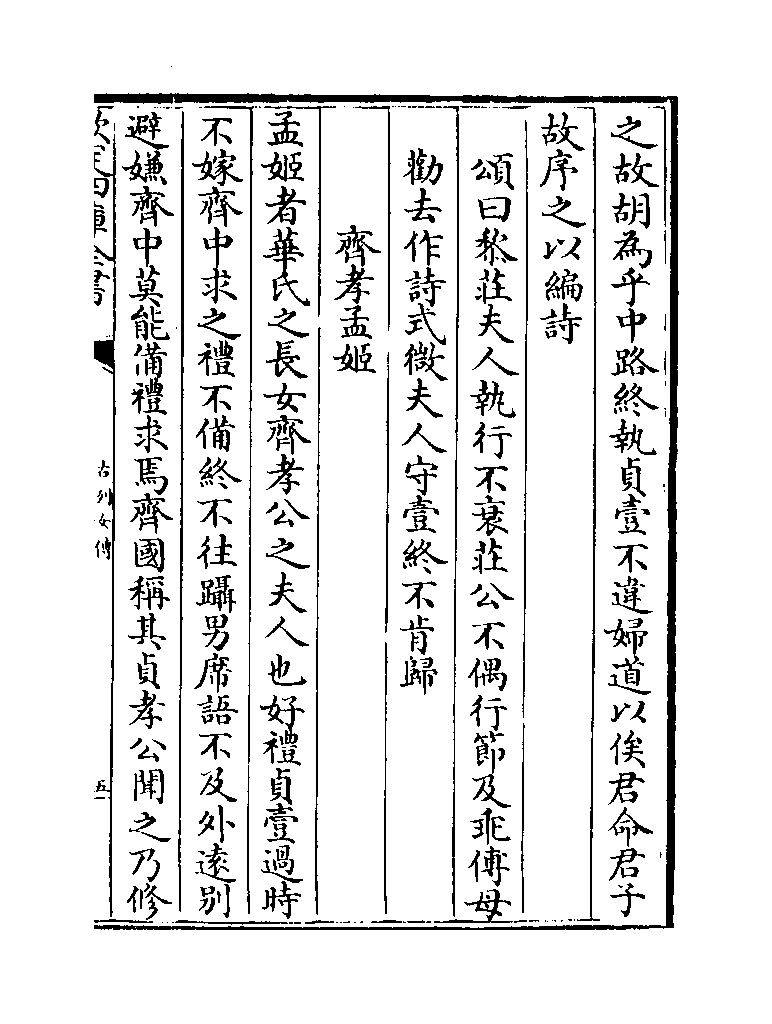 之故胡為乎中路終執貞壹不違婦道以俟君命君子
故序之以編詩
頌曰黎莊夫人執行不衰莊公不偶行節及乖傅母
勸去作詩式微夫人守壹終不肯歸
齊孝孟姬
孟姬者華氏之長女齊孝公之夫人也好禮貞壹過時
不嫁齊中求之禮不備終不往躡男席語不及外遠別
避嫌齊中莫能備禮求焉齊國稱其貞孝公聞之乃修
欽定四庫全書
古列女傳
五